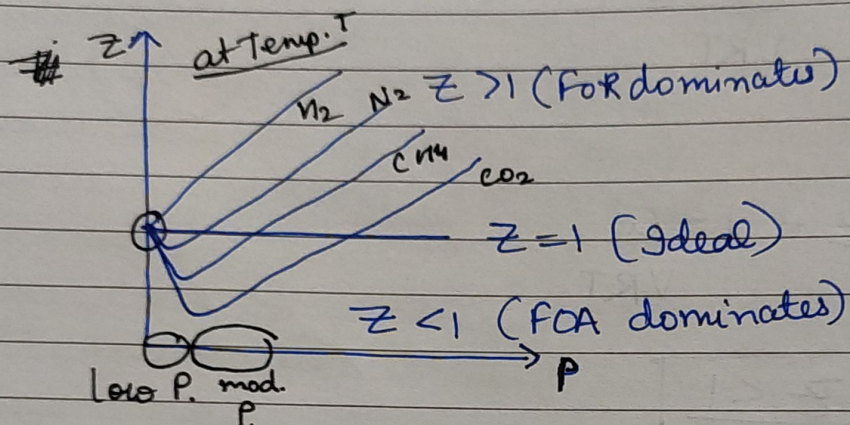 Z at Temp. T
H2 N2 Z >1 (FOR dominates)
CH4
CO2
Z =1 (Ideal)
Z <1 (FOA dominates)
P
Low P. mod.
P.